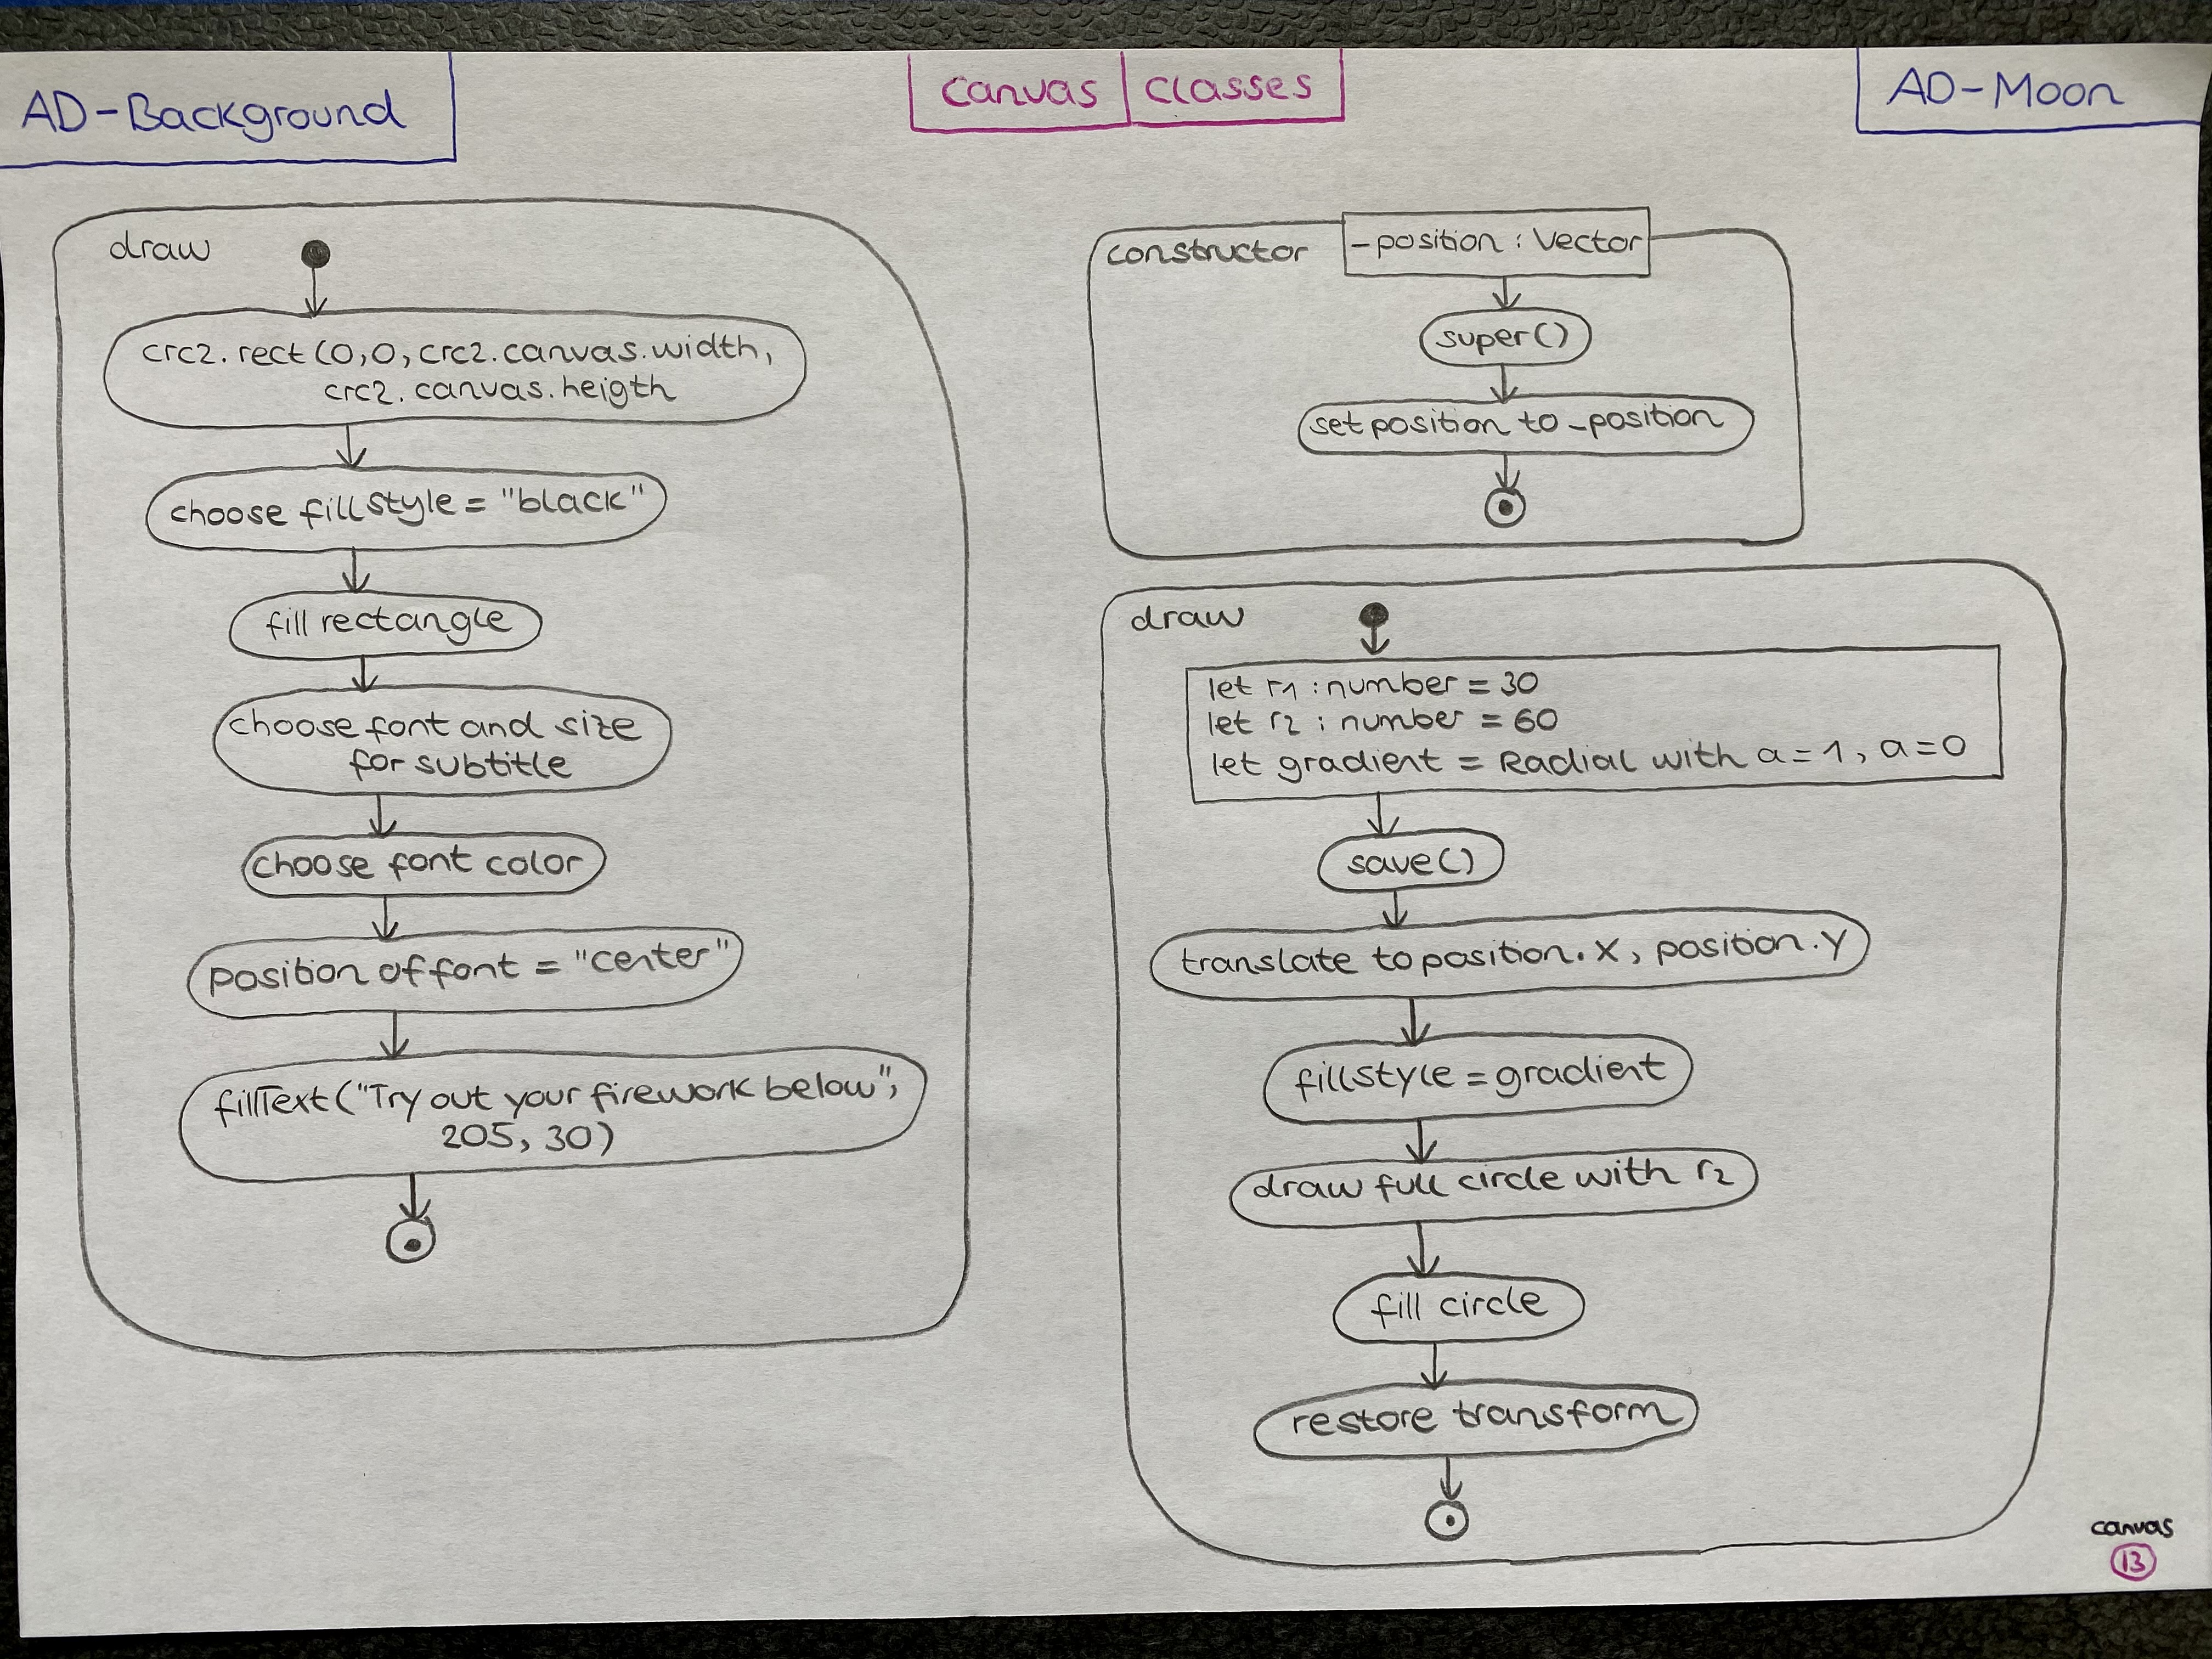 AD-Background
Canvas Classes
AD-Moon
draw
crc2.rect (0,0, crc2.canvas.width,
crc2.canvas.heigth
choose fillstyle = "black"
fill rectangle
choose font and size
for subtitle
choose font color
position of font = "center"
fillText ("Try out your firework below",
205, 30)
constructor
_position : Vector
super()
set position to _position
draw
let r1 : number = 30
let r2 : number = 60
let gradient = Radial with a=1, a=0
save()
translate to position.x, position.y
fillstyle = gradient
draw full circle with r2
fill circle
restore transform
canvas
13